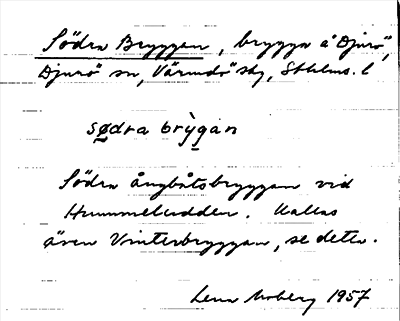 Södra Bryggan, brygga å Djurö,
Djurö sn, Värmdö sky, Sthlms. l
södra brỳgan
Södra ångbåtsbryggan vid
Hummeludden. Kallas
även Vinterbryggan, se detta.
Lena Moberg 1957